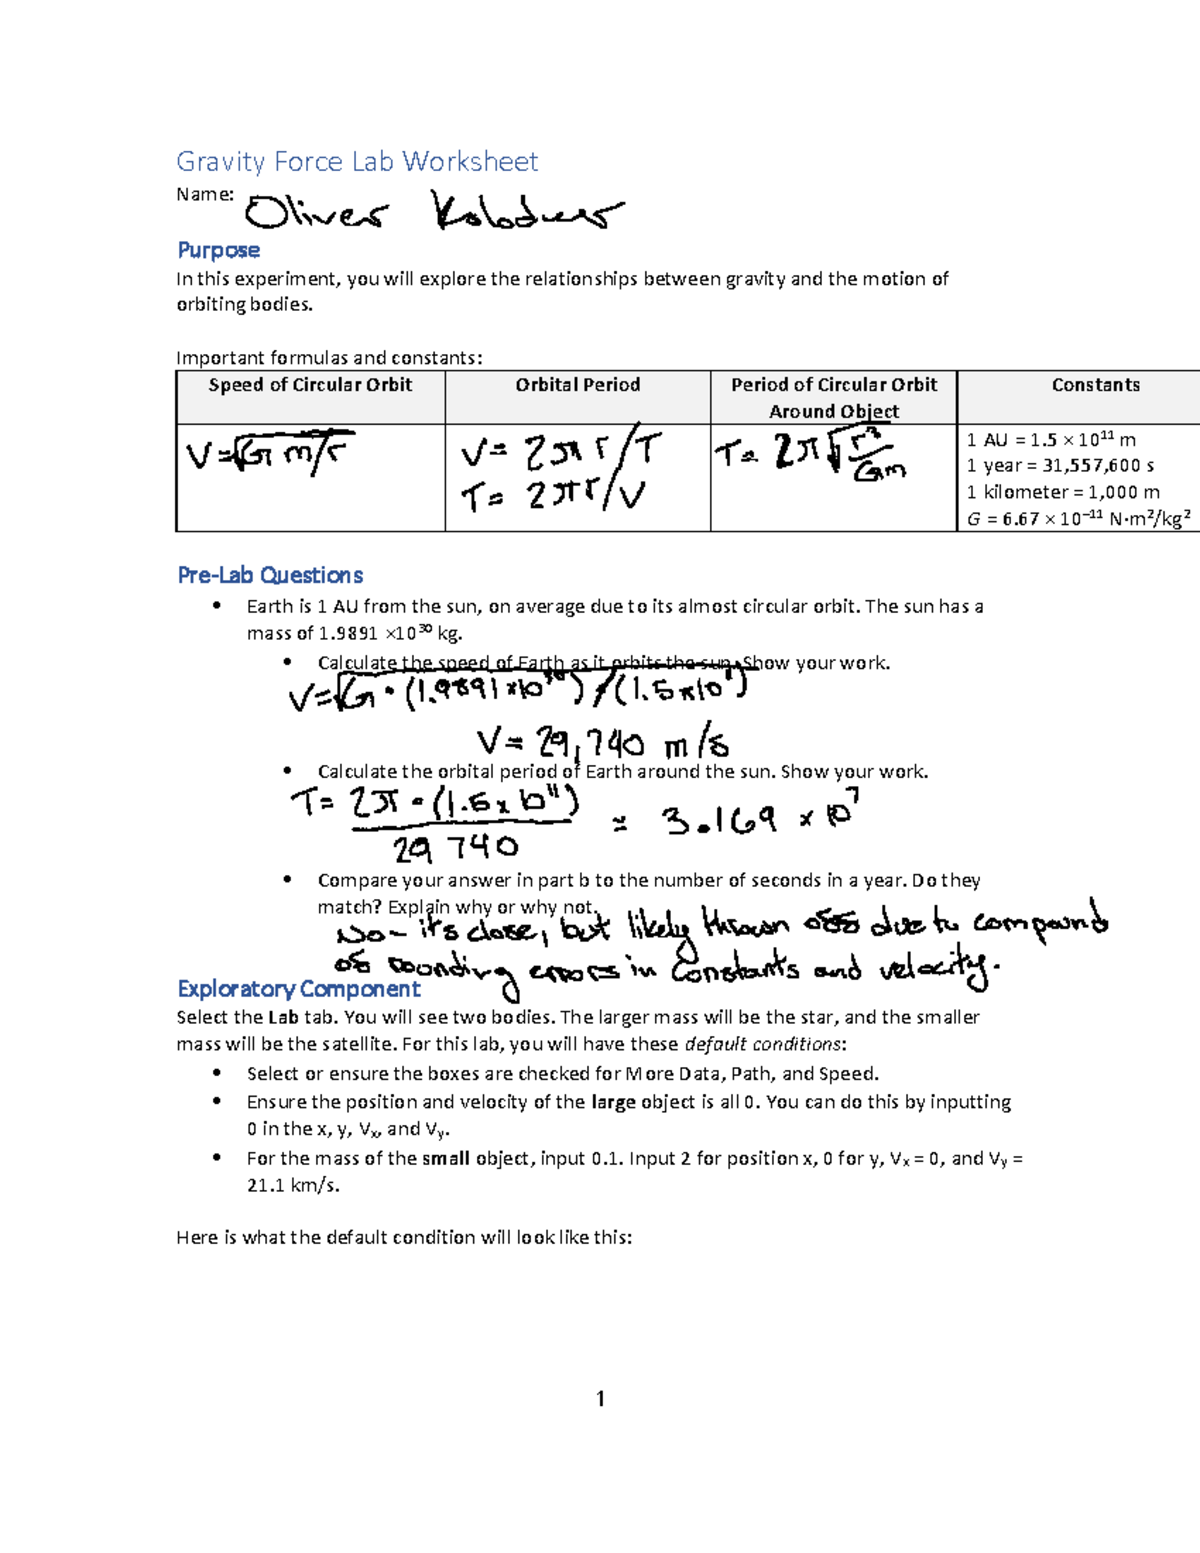 Gravity Force Lab Worksheet
Name: Oliver
Purpose
In this experiment, you will explore the relationships between gravity and the motion of
orbiting bodies.
Important formulas and constants:
Speed of Circular Orbit
Orbital Period
Period of Circular Orbit
Around Object
Constants
V=√Gm/r
V= 2πr/T
T= 2πr/V
T= 2π√r³/Gm
1 AU = 1.5 × 10¹¹ m
1 year = 31,557,600 s
1 kilometer = 1,000 m
G = 6.67 × 10⁻¹¹ N·m²/kg²
Pre-Lab Questions
• Earth is 1 AU from the sun, on average due to its almost circular orbit. The sun has a
mass of 1.9891 ×10³⁰ kg.
• Calculate the speed of Earth as it orbits the sun. Show your work.
V=√G·(1.9891×10³⁰)/(1.5×10¹¹)
V= 29,740 m/s
• Calculate the orbital period of Earth around the sun. Show your work.
T= 2π·(1.5×10¹¹) = 3.169 × 10⁷
29 740
• Compare your answer in part b to the number of seconds in a year. Do they
match? Explain why or why not.
No- its close, but likely thrown off due to compound
of rounding errors in constants and velocity.
Exploratory Component
Select the Lab tab. You will see two bodies. The larger mass will be the star, and the smaller
mass will be the satellite. For this lab, you will have these default conditions:
• Select or ensure the boxes are checked for More Data, Path, and Speed.
• Ensure the position and velocity of the large object is all 0. You can do this by inputting
0 in the x, y, Vₓ, and Vᵧ.
• For the mass of the small object, input 0.1. Input 2 for position x, 0 for y, Vₓ = 0, and Vᵧ =
21.1 km/s.
Here is what the default condition will look like this:
1